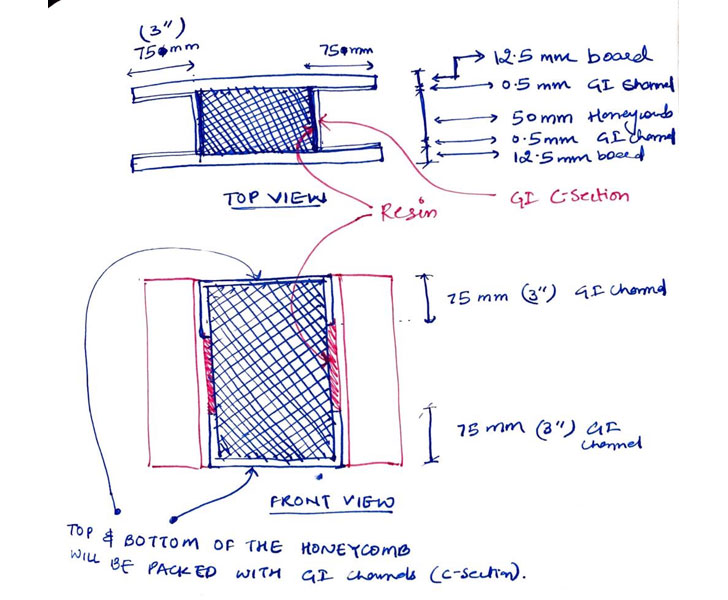 (3")
75 mm
75 mm
12.5 mm board
0.5 mm GI Channel
50 mm Honeycomb
0.5 mm GI Channel
12.5 mm board
TOP VIEW
GI C-Section
Resin
75 mm (3") GI Channel
75 mm (3") GI
Channel
FRONT VIEW
TOP & BOTTOM OF THE HONEYCOMB
WILL BE PACKED WITH GI Channels (C-Section).